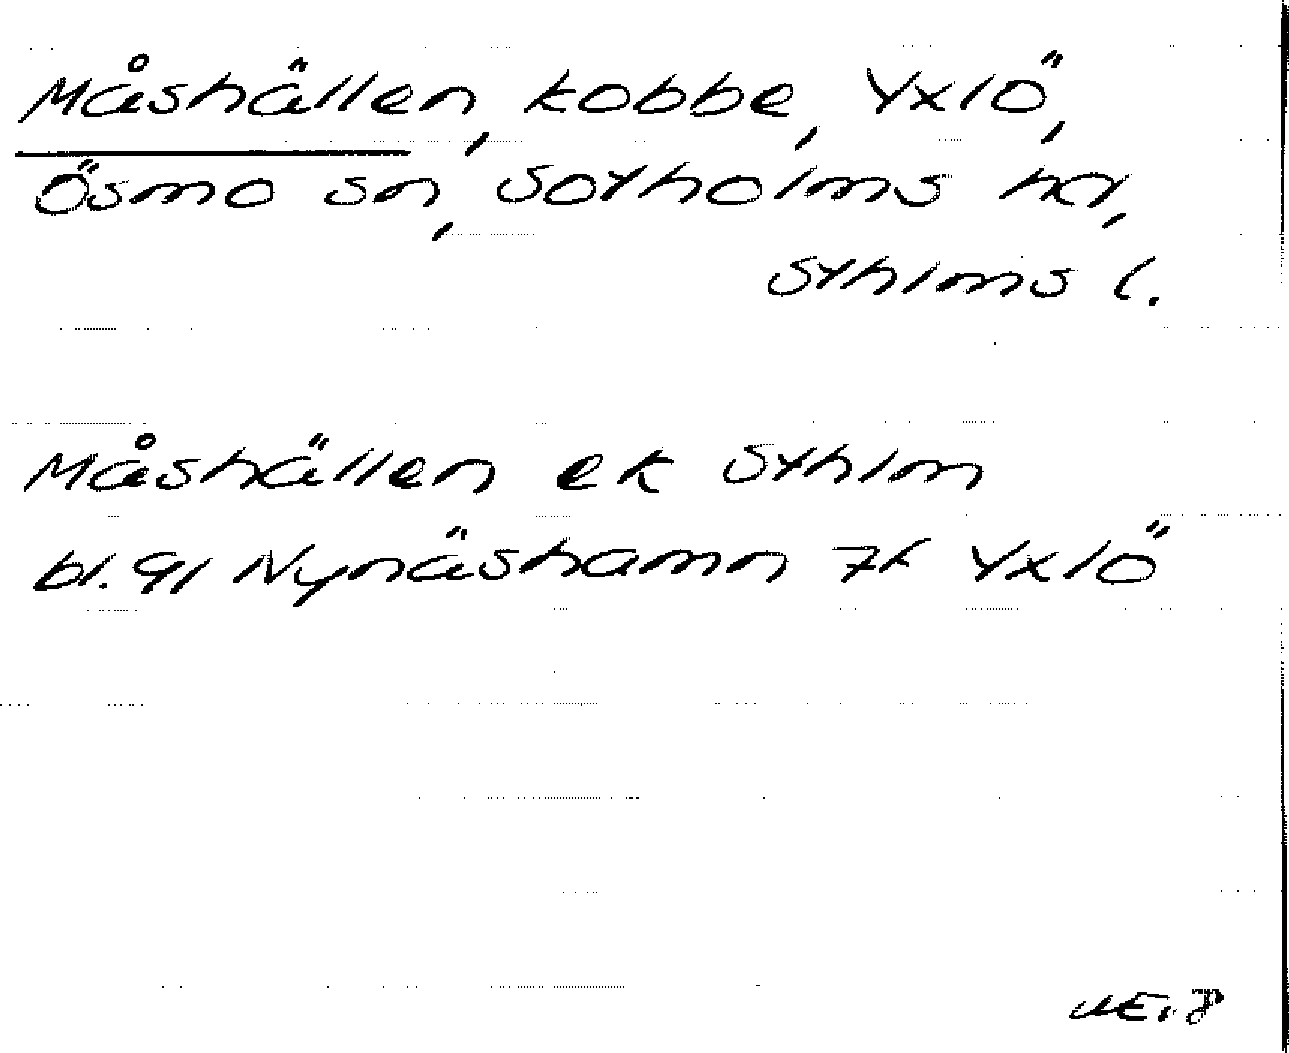 Måshällen, kobbe, Yxlö,
Ösmo sn, Sotholms hd,
Sthlms l.
Måshällen ek Sthlm
bl. 91 Nynäshamn 7f Yxlö